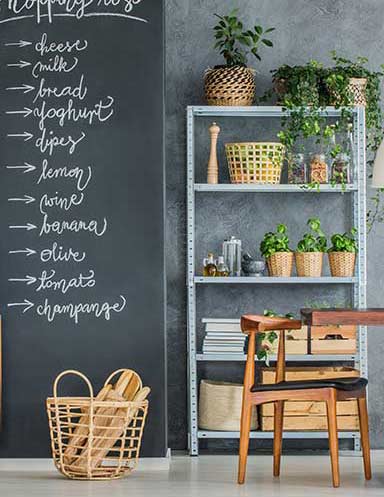 hopping list
→ cheese
→ milk
→ bread
→ yoghurt
→ dips
→ lemon
→ wine
→ banana
→ olive
→ tomato
→ champange